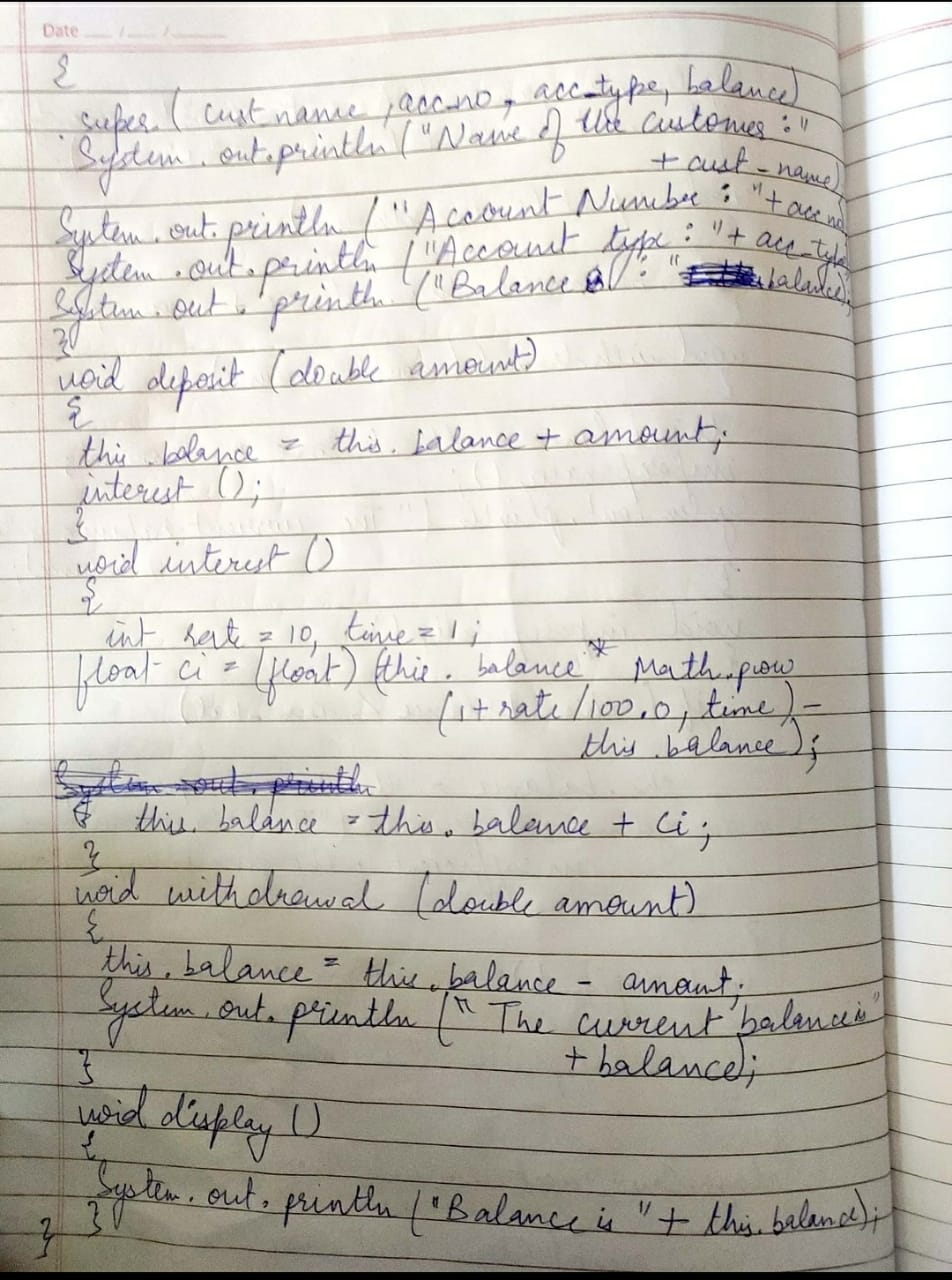 Date __/__/__
{
super ( cust name , acc.no , acc_type, balance)
System . out.println ("Name of the customer :"
+ cust - name)
System . out. println ("Account Number : "+ acc no
System . out . println ("Account type : "+ acc_type
System . out . println ("Balance : " balance);
}
void deposit (double amount)
{
this . balance = this . balance + amount;
interest ();
}
void interest ()
{
int rate = 10, time = 1 ;
float ci = (float) (this . balance * Math.pow
(1+ rate /100.0, time ) -
this . balance );
this. balance = this . balance + ci ;
}
void withdrawal (double amount)
{
this . balance = this . balance - amount;
System . out . println (" The current balance is"
+ balance);
}
void display ()
{
System . out . println ("Balance is "+ this. balance);
} }